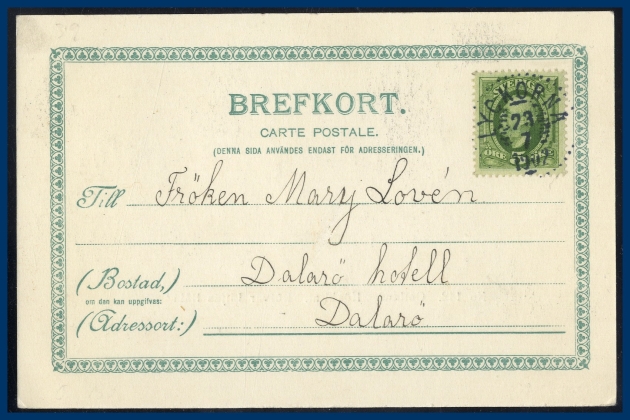 BREFKORT.
CARTE POSTALE.
(DENNA SIDA ANVÄNDES ENDAST FÖR ADRESSERINGEN.)
LYCKORNA
23
7
1902
Till Fröken Mary Lovén
(Bostad,) Dalarö hotell
om den kan uppgifvas:
(Adressort:) Dalarö